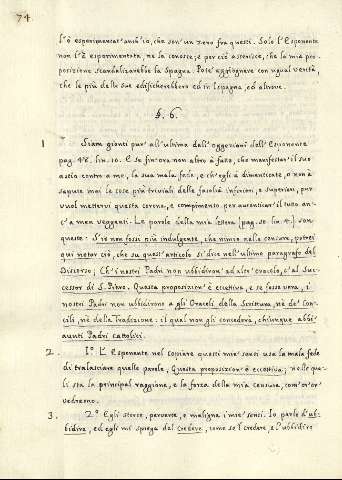 74
l'è esperimentat'anch'io, che son'un zero fra questi. Solo l'Esponente
non l'è esperimentata, ne la conosce; e per ciò asserisce, che la mia pro-
posizione scandalizarebbe la Spagna. Potè aggiognere con ugual verità,
che le più delle sue edificherebbero ed in Ispagna, ed altrove.
§. 6.
1 Siam gionti pur' all'ultima dell'oggezioni dell'Esponente
pag. 48. lin. 10. E se fin'ora non altro à fatto, che manifestar' il suo
astio contro a me, la sua mala fede, e ch'egli à dimenticate, o non à
sapute mai le cose più triviali delle facoltà inferiori, e superiori, pur
vuol mettervi questa corona, e compimento per autenticar' il tutto an-
c'a men veggenti. Le parole della mia lettera (pag. 50. lin. 4.) son
queste: S'io non fossi più indulgente, che nimico nelle censure, potrei
qui notar' ciò, che su quest'articolo si dice nell'ultimo paragrafo del
Discorso; Ch'i nostri Padri non ubbidiron' ad altr'oracolo, ch'al Suc-
cessor di S. Pietro. Questa proposizion' è eccettiva, e se fosse vera, i
nostri Padri non ubbidirono a gli Oracoli della Scrittura, nè de' Con-
cili, nè della Tradizione: il qual non gli concederà, chiunque abbi-
avuti Padri cattolici.
2. 1.° L'Esponente nel copiare questi miei sensi usa la mala fede
di tralasciare quelle parole, Questa proposizion' è eccettiva; nelle qua-
li sta la principal raggione, e la forza della mia censura, com'or'or
vedremo.
3. 2.° Egli storce, perverte, e maligna i miei sensi. Io parlo d'ub-
bidire, ed egli mi spiega dal credere, come se'l credere, e l'ubbidire